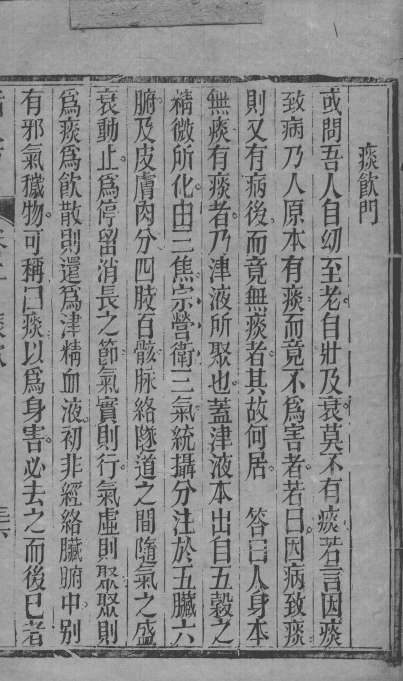 痰飲門
或問吾人自幼至老自壯及衰莫不有痰若言因痰
致病乃人原本有痰而竟不為害者若曰因病致痰
則又有病後而竟無痰者其故何居　答曰人身本
無痰有痰者乃津液所聚也蓋津液本出自五穀之
精微所化由三焦宗營衛三氣統攝分注於五臟六
腑及皮膚肉分四肢百骸脉絡隧道之間隨氣之盛
衰動止為停留消長之節氣實則行氣虛則聚聚則
為痰為飲散則還為津精血液初非經絡臟腑中別
有邪氣穢物可稱曰痰以為身害必去之而後已者